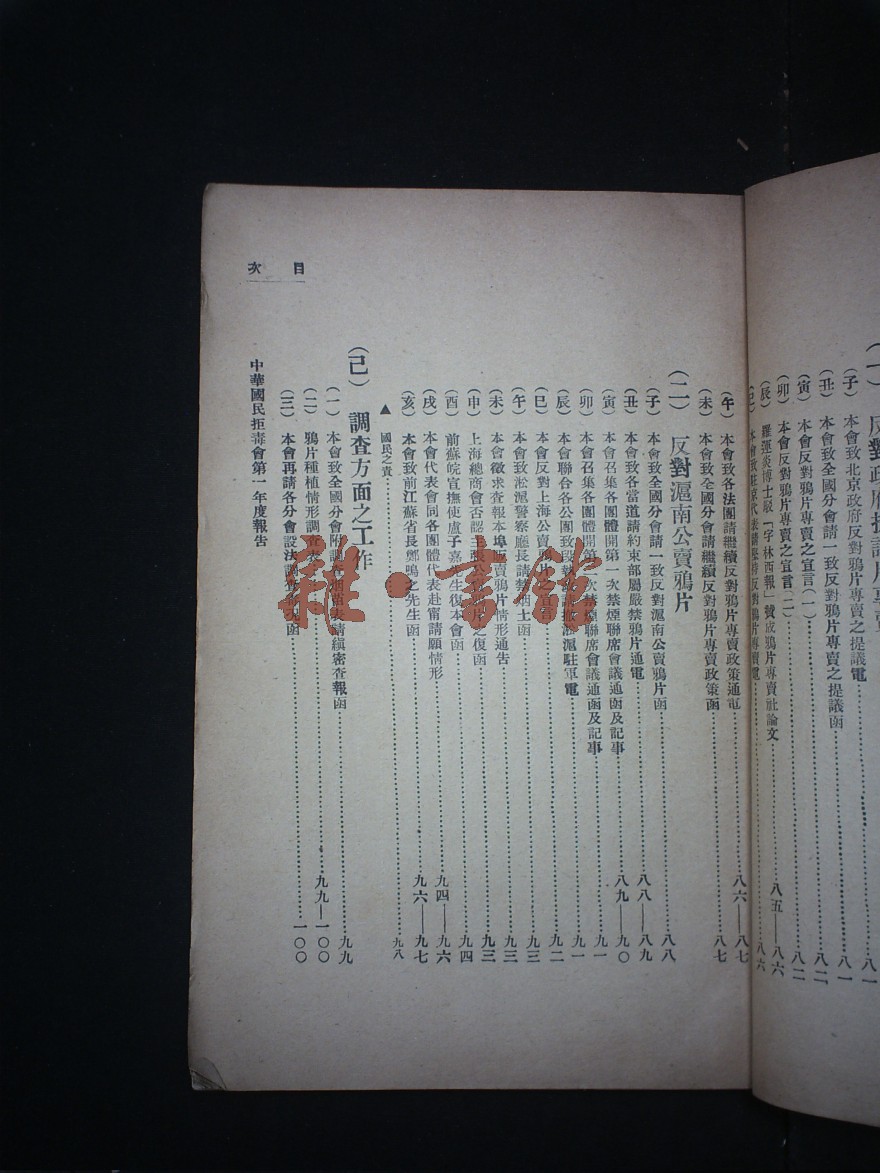 (子) 本會致北京政府反對鴉片專賣之提議電……八一
(丑) 本會致全國分會請一致反對鴉片專賣之提議函……八一
(寅) 本會反對鴉片專賣之宣言(一)……八二
(卯) 本會反對鴉片專賣之宣言(二)……八二
(辰) 羅運炎博士駁「字林西報」贊成鴉片專賣社論文……八五—八六
(巳) 本會致駐京代表請堅持反對鴉片專賣電……八六
(午) 本會致各法團請繼續反對鴉片專賣政策通電……八六—八七
(未) 本會致全國分會請繼續反對鴉片專賣政策函……八七
(二) 反對滬南公賣鴉片
(子) 本會致全國分會請一致反對滬南公賣鴉片函……八八
(丑) 本會致各當道請約束部屬嚴禁鴉片通電……八八—八九
(寅) 本會召集各團體開第一次禁煙聯席會議通函及記事……八九—九〇
(卯) 本會召集各團體開第二次禁煙聯席會議通函及記事……九一
(辰) 本會聯合各公團致段執政請撤淞滬駐軍電……九二
(巳) 本會反對上海公賣鴉片之宣言……九二
(午) 本會致淞滬警察廳長請禁烟土函……九三
(未) 本會徵求查報本埠販賣鴉片情形通告……九三
(申) 上海總商會否認主張公賣鴉片之復函……九四
(酉) 前蘇皖宣撫使盧子嘉先生復本會函……九四
(戌) 本會代表會同各團體代表赴甯請願情形……九四—九六
(亥) 本會致前江蘇省長鄭鳴之先生函……九六—九七
▲國民之責……九八
(己) 調查方面之工作
(一) 本會致全國分會附調查表請縝密查報函……九九
(二) 鴉片種植情形調查表……九九—一〇〇
(三) 本會再請各分會設法調查函……一〇〇
中華國民拒毒會第一年度報告
目次
雜·書館